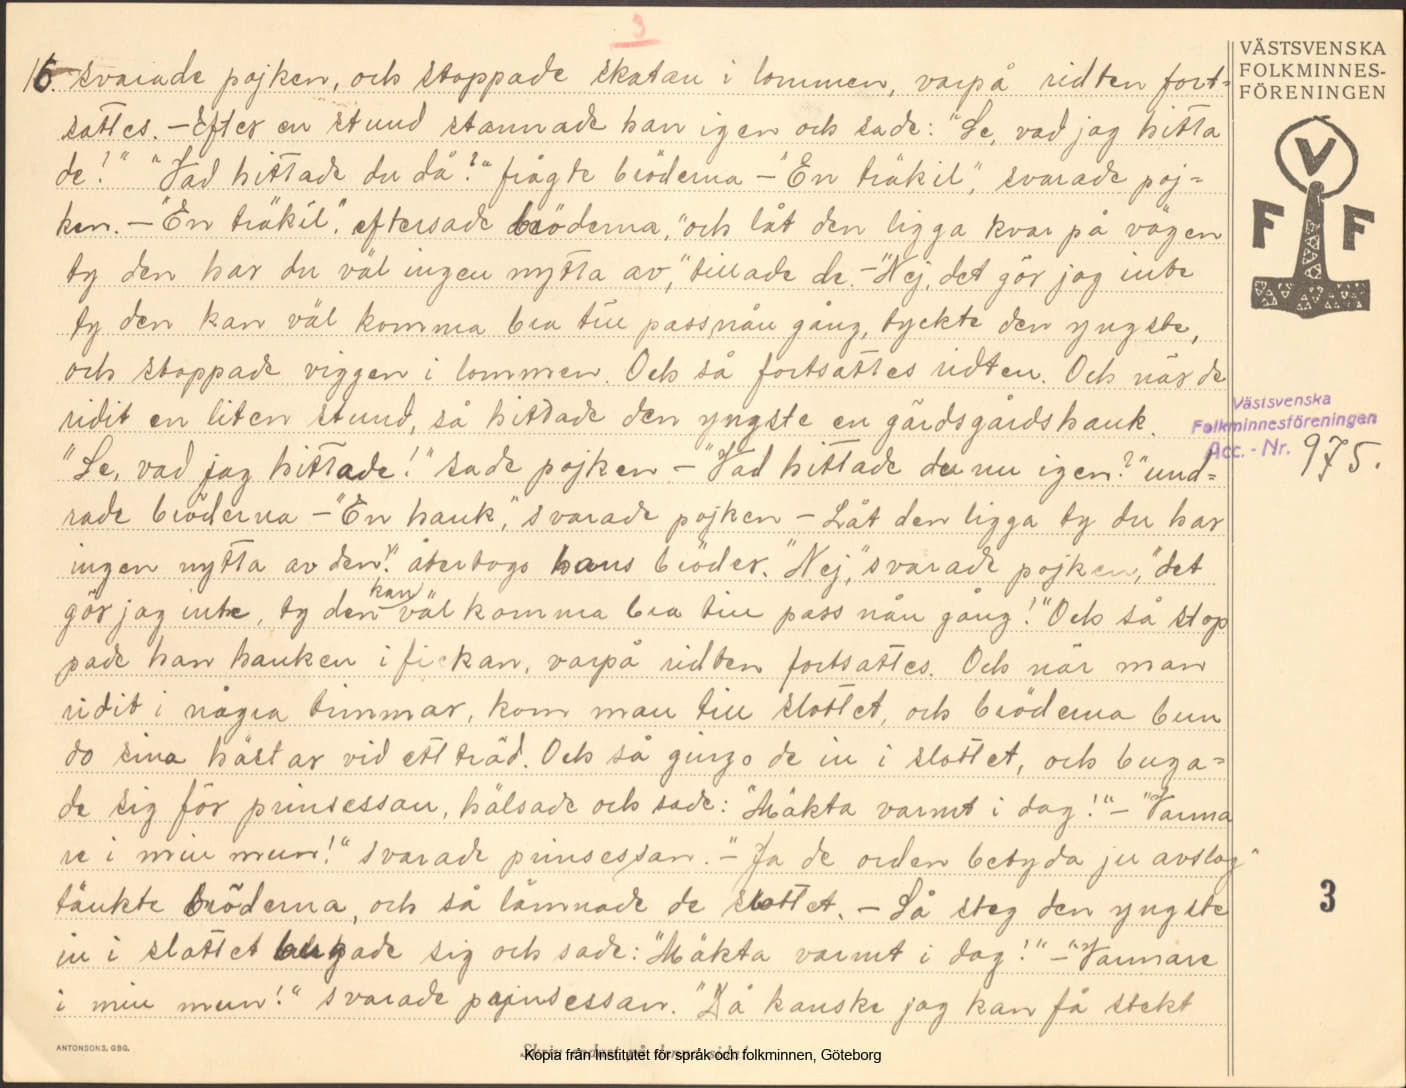 3
VÄSTSVENSKA
FOLKMINNES-
FÖRENINGEN
V
F F
16. svarade pojken, och stoppade skatan i lommen, varpå ridten fort=
sattes. - Efter en stund stannade han igen och sade: "Se, vad jag hitta
de!" "Vad hittade du då?" frågte bröderna - "En träkil", svarade poj=
ken. - "En träkil", eftersade bröderna, "och låt den ligga kvar på vägen
ty den har du väl ingen nytta av," tillade de. - "Nej, det gör jag inte
ty den kan väl komma bra till pass nån gång, tyckte den yngste,
och stoppade viggen i lommen. Och så fortsattes ridten. Och när de
ridit en liten stund, så hittade den yngste en gärdsgårdshank.
"Se, vad jag hittade!" sade pojken - "Vad hittade du nu igen?" und=
rade bröderna - "En hank", svarade pojken - Låt den ligga ty du har
ingen nytta av den!" återtogo hans bröder. "Nej," svarade pojken, "det
gör jag inte, ty den kan väl komma bra till pass nån gång!" Och så stop
pade han hanken i fickan, varpå ridten fortsattes. Och när man
ridit i några timmar, kom man till slottet, och bröderna bun
do sina hästar vid ett träd. Och så gingo de in i slottet, och buga=
de sig för prinsessan, hälsade och sade: "Mäkta varmt i dag!" - "Varma
re i min mun!" svarade prinsessan. - "Ja de orden betyda ju avslag"
tänkte bröderna, och så lämnade de slottet. - Så steg den yngste
in i slottet bugade sig och sade: "Mäkta varmt i dag!" - "Varmare
i min mun!" svarade prinsessan. "Då kanske jag kan få stekt
Västsvenska
Folkminnesföreningen
Acc.-Nr. 975.
3
ANTONSONS, GBG.
Kopia från Institutet för språk och folkminnen, Göteborg